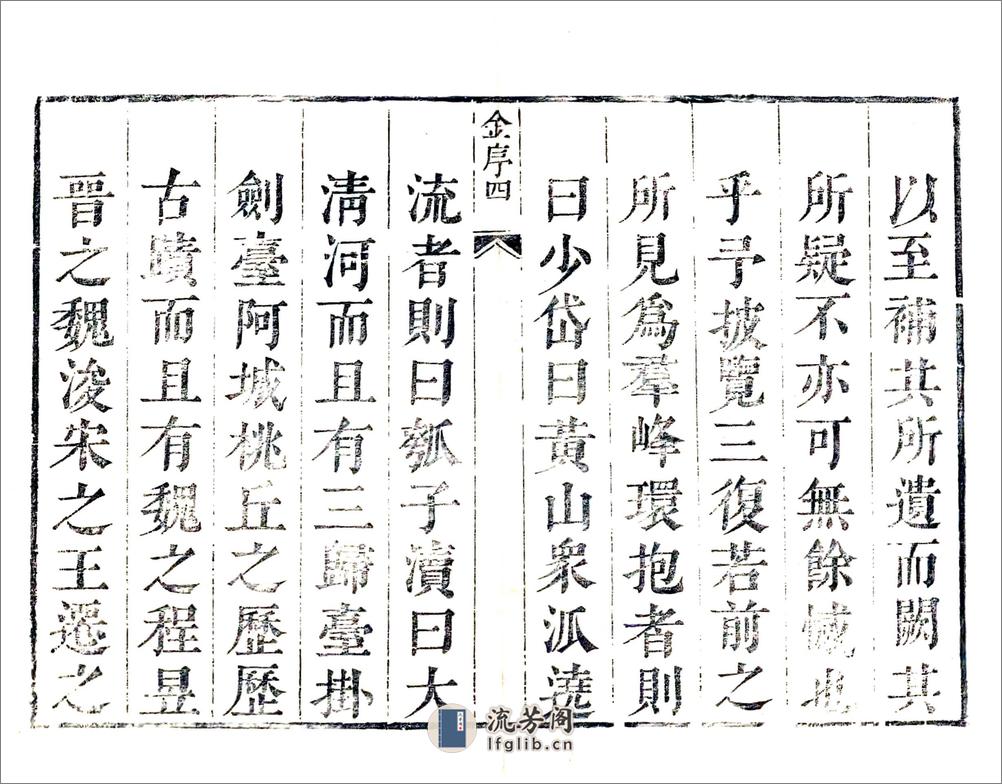 以至補其所遺而闕其
所疑不亦可無餘憾也
乎予披覽三復若前之
所見為羣峰環抱者則
曰少岱曰黃山衆派澆
金序四
流者則曰瓠子瀆曰大
清河而且有三歸臺掛
劍臺阿城桃丘之歷歷
古蹟而且有魏之程昱
晉之魏浚宋之王遷之
流芳阁
lfglib.cn